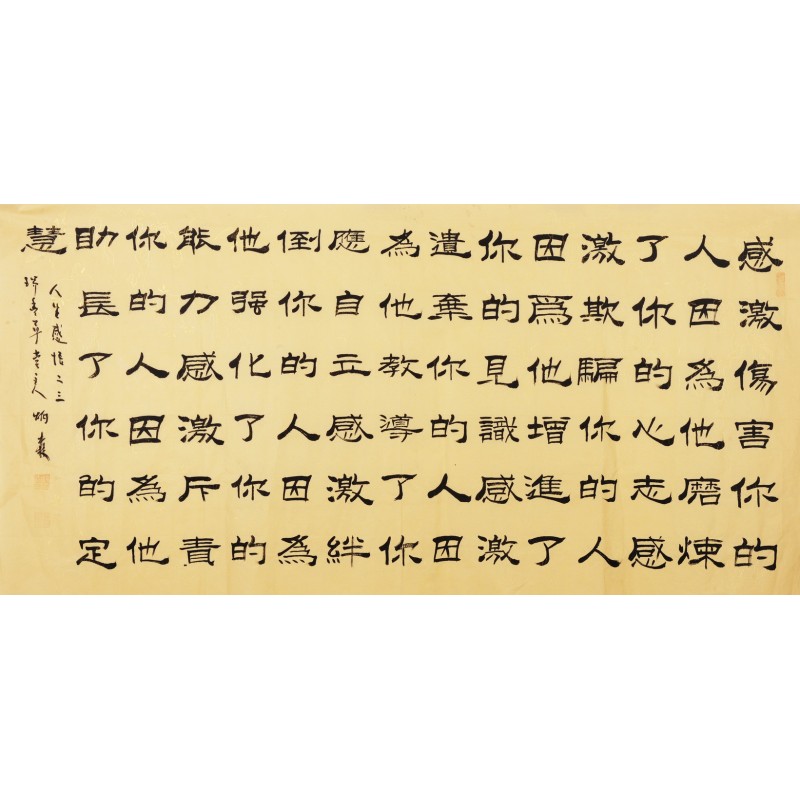 感激傷害你的
人因為他磨煉
了你的心志感
激欺騙你的人
因爲他增進了
你的見識感激
遺棄你的人因
為他教導了你
應自立感激絆
倒你的人因為
他强化了你的
能力感激斥責
你的人因為他
助長了你的定
慧
人生感悟之三